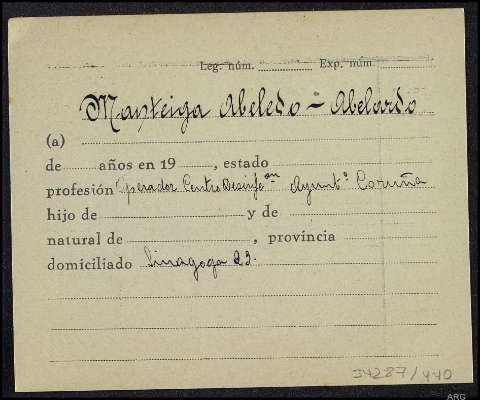 Leg. núm. Exp. núm.
Manteiga Abeledo - Abelardo
(a)
de años en 19 , estado
profesión Operador Centro Desinfeon Ayuntº Coruña
hijo de y de
natural de , provincia
domiciliado Sinagoga 23.
34287/440
ARG